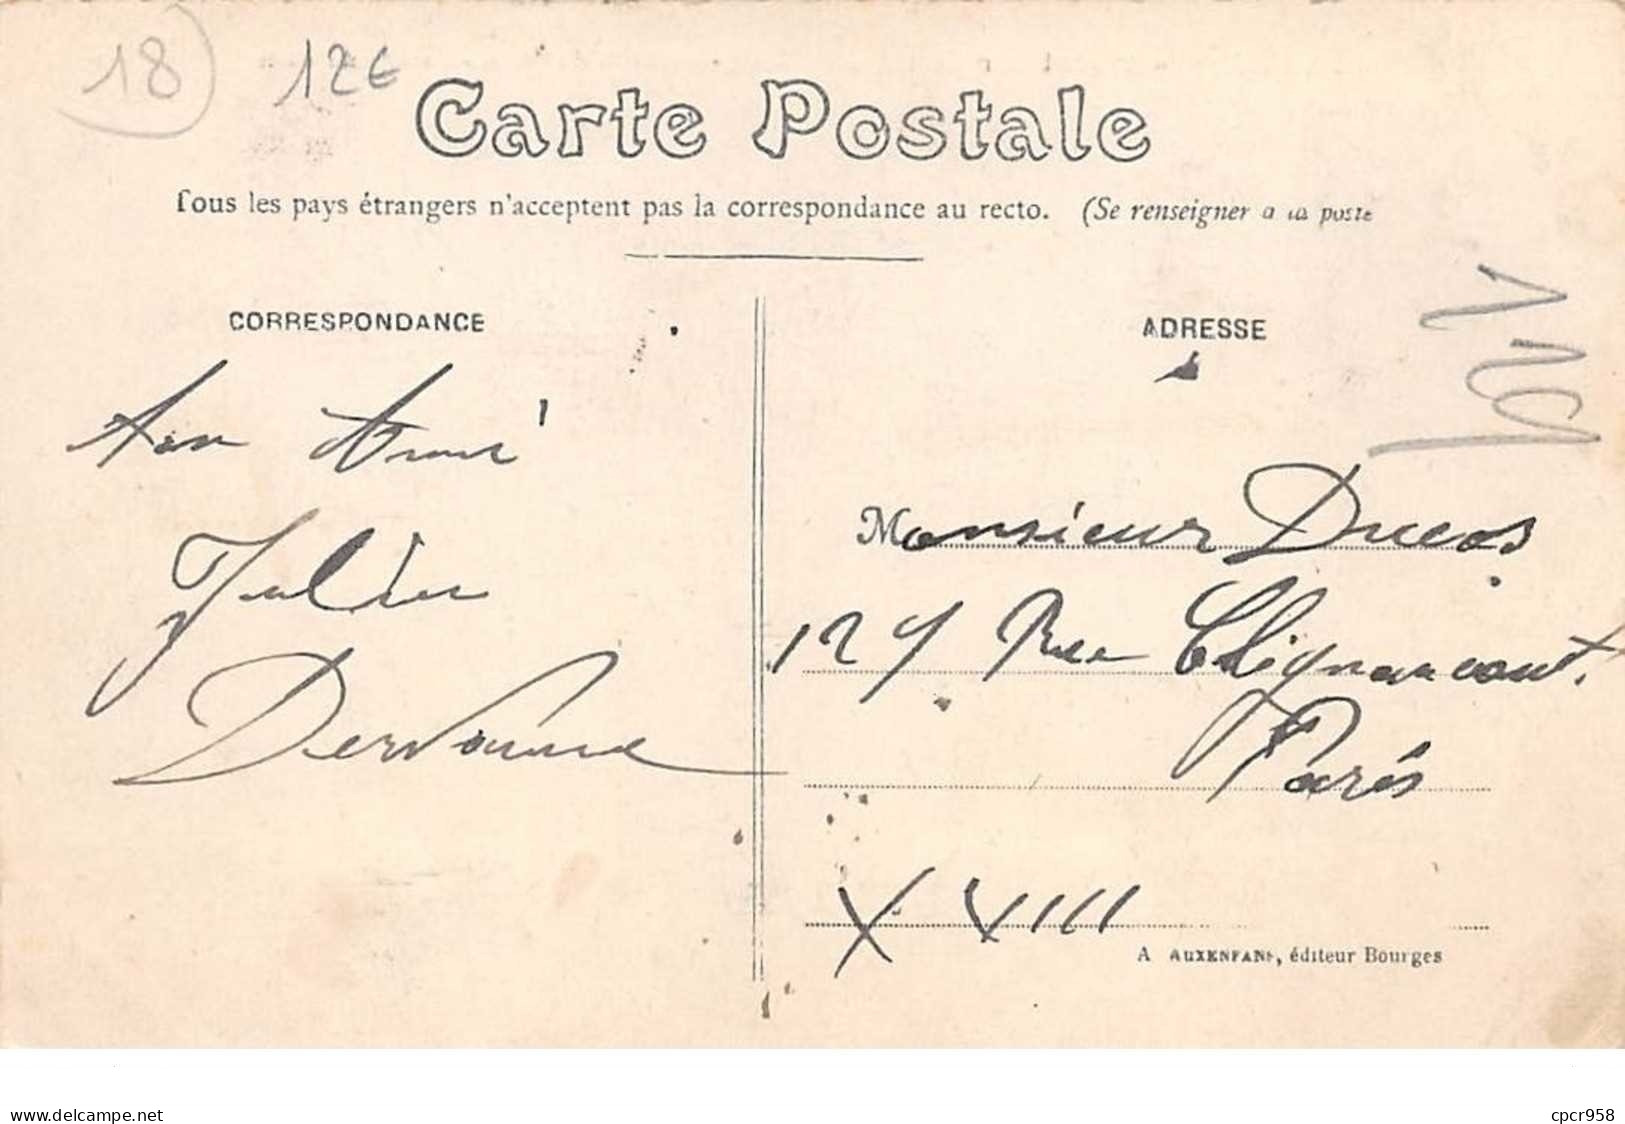 18 12€
Carte Postale
Tous les pays étrangers n'acceptent pas la correspondance au recto. (Se renseigner a la poste
CORRESPONDANCE
Ton Ami
Julien
ADRESSE
Monsieur Ducos
127 Rue Clignancourt.
Paris
XVIII
A AUXENFANS, éditeur Bourges
www.delcampe.net
cpcr958